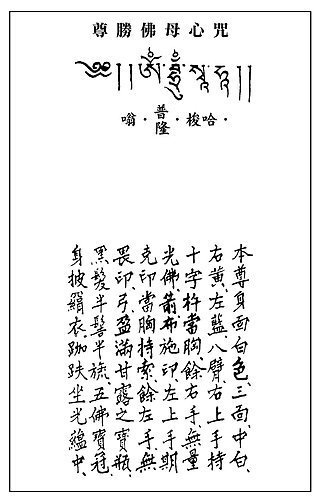 尊勝佛母心咒
༄༅། །ༀ་བྷྲཱུྃ་སྭཱ་ཧཱ། །
嗡·普隆·梭哈·
本尊身面白色、三面、中白、
右黃、左藍、八臂、右上手持
十字杵當胸、餘右手、無量
光佛、箭、布施印、左上手、期
克印當胸持索、餘左手、無
畏印、弓、盈滿甘露之寶瓶、
黑髮半髻半旒、五佛寶冠、
身披絹衣、跏趺坐光蘊中、